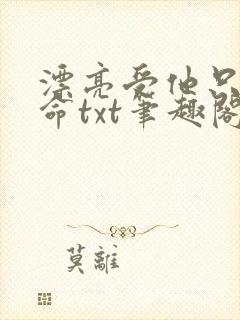 漂亮受他只
命txt笔趣阁
莫離